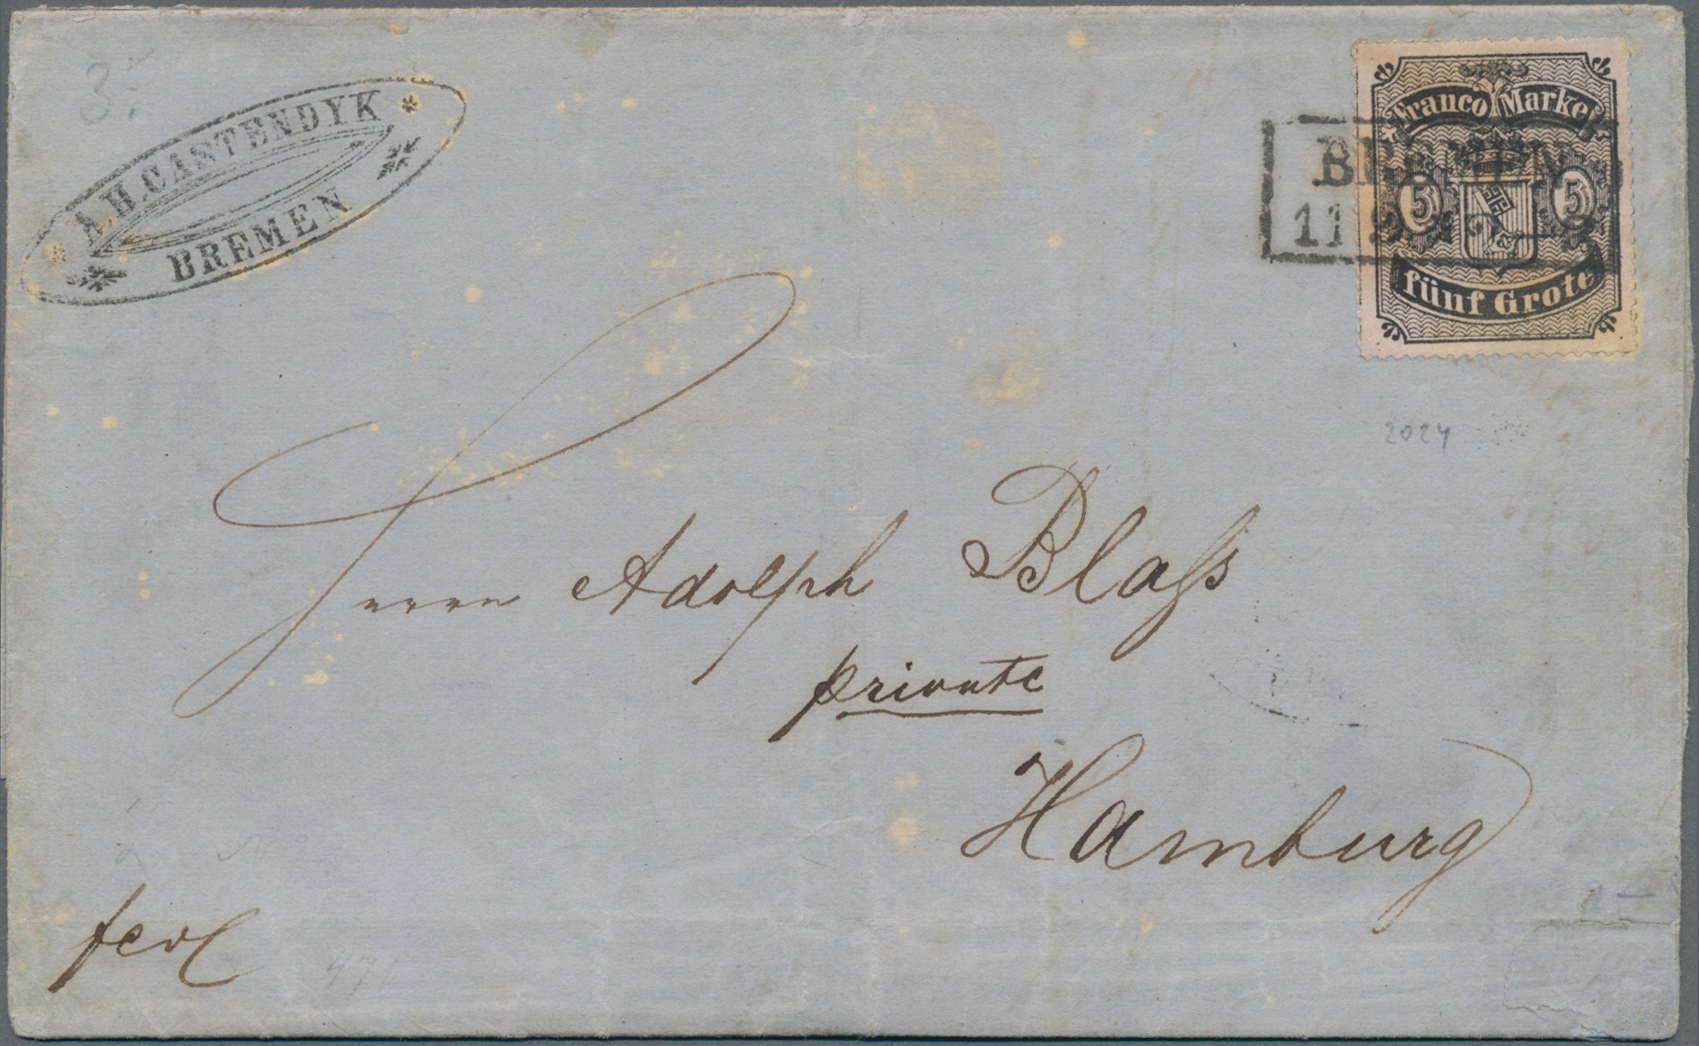 3.-
A.H.CASTENDYK
BREMEN
Franco Marke
BREMEN
5 5
11
fünf Grote
2024
Herrn Adolph Blaſs
private
Hamburg